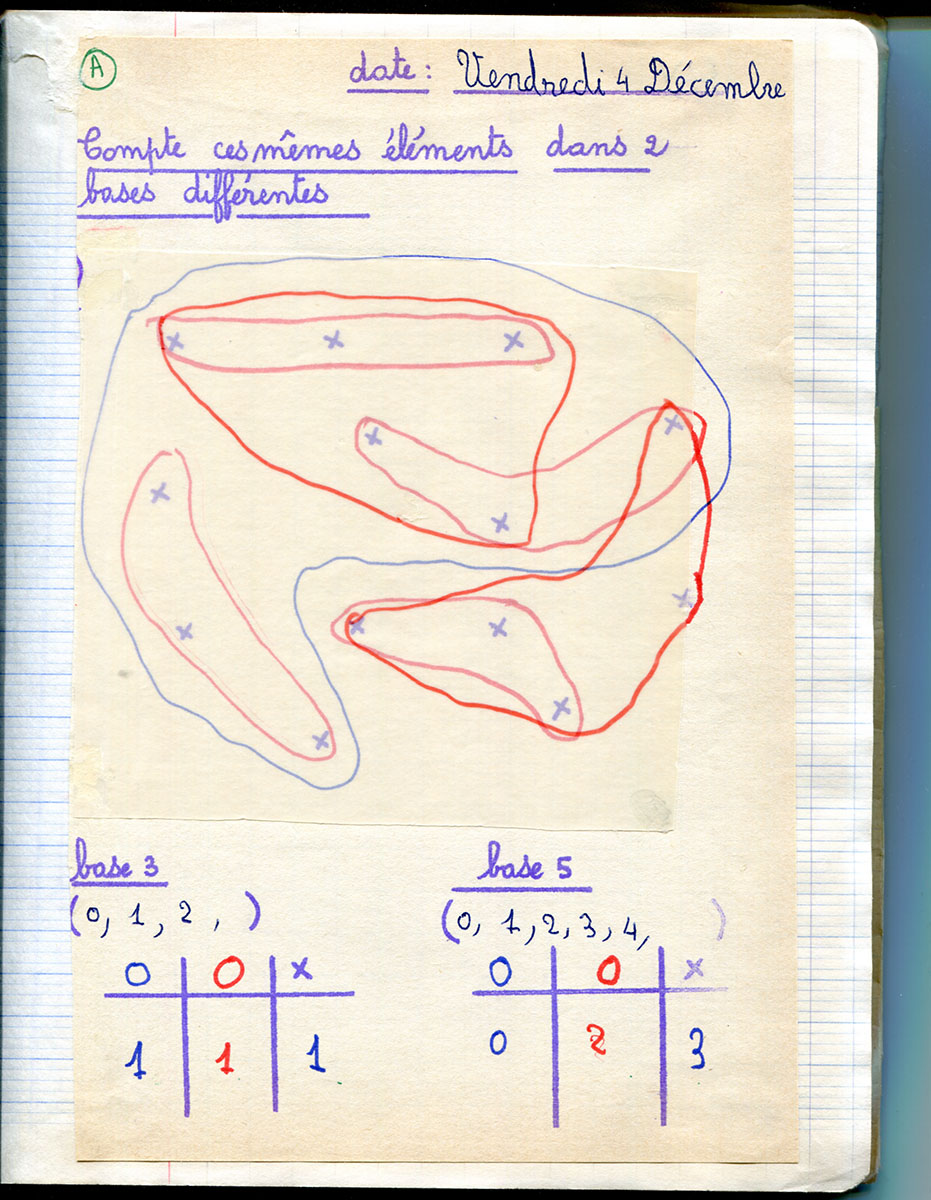 A
date : Vendredi 4 Décembre
Compte ces mêmes éléments dans 2
bases différentes
x x x
x x
x x
x x
x x x
x x
base 3 base 5
(0, 1, 2, ) (0, 1, 2, 3, 4, )
0 0 x 0 0 x
1 1 1 0 2 3